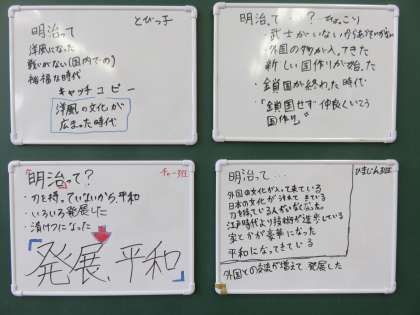 とびっ子
明治って
洋風になった
戦いがない(国内での)
裕福な時代
キャッチコピー
洋風の文化が
広まった時代
明治って…?
武士がいない
外国の物が入ってきた
新しい国作りが始った
・鎖国が終わった時代
"鎖国せず仲良くいこう
国作り"
チャー班
明治って?
・刀を持っていないから平和
・いろいろ発展した
・清けつになった
発展、平和
ひまじん班
明治って…
外国の文化が入って来ている
日本の文化がうすれてきている
刀を持ている人がいなくなった
江戸時代より技術が進歩している
家とかが豪華になった
平和になってきている
外国との交流が増えて発展した